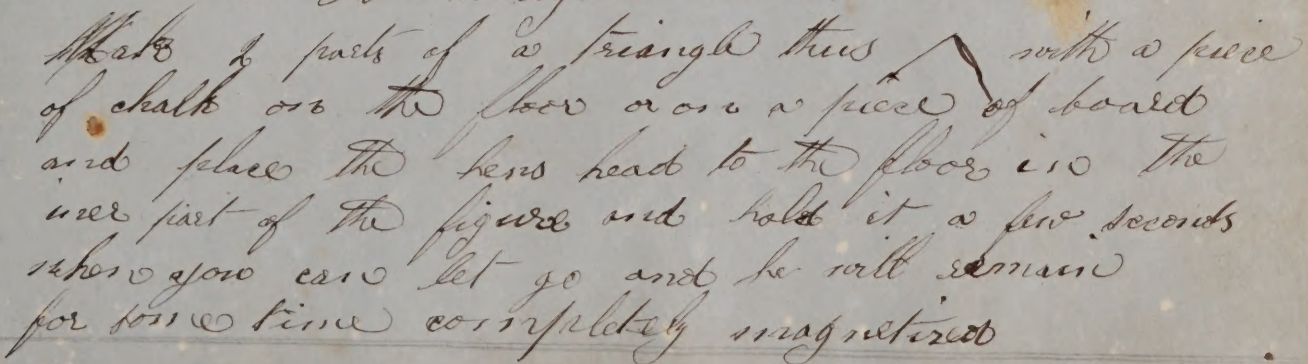 Make 2 parts of a triangle thus with a piece
of chalk on the floor or on a piece of board
and place the hens head to the floor in the
iner part of the figure and hold it a few seconds
when you can let go and he will remain
for some time completely magnetized